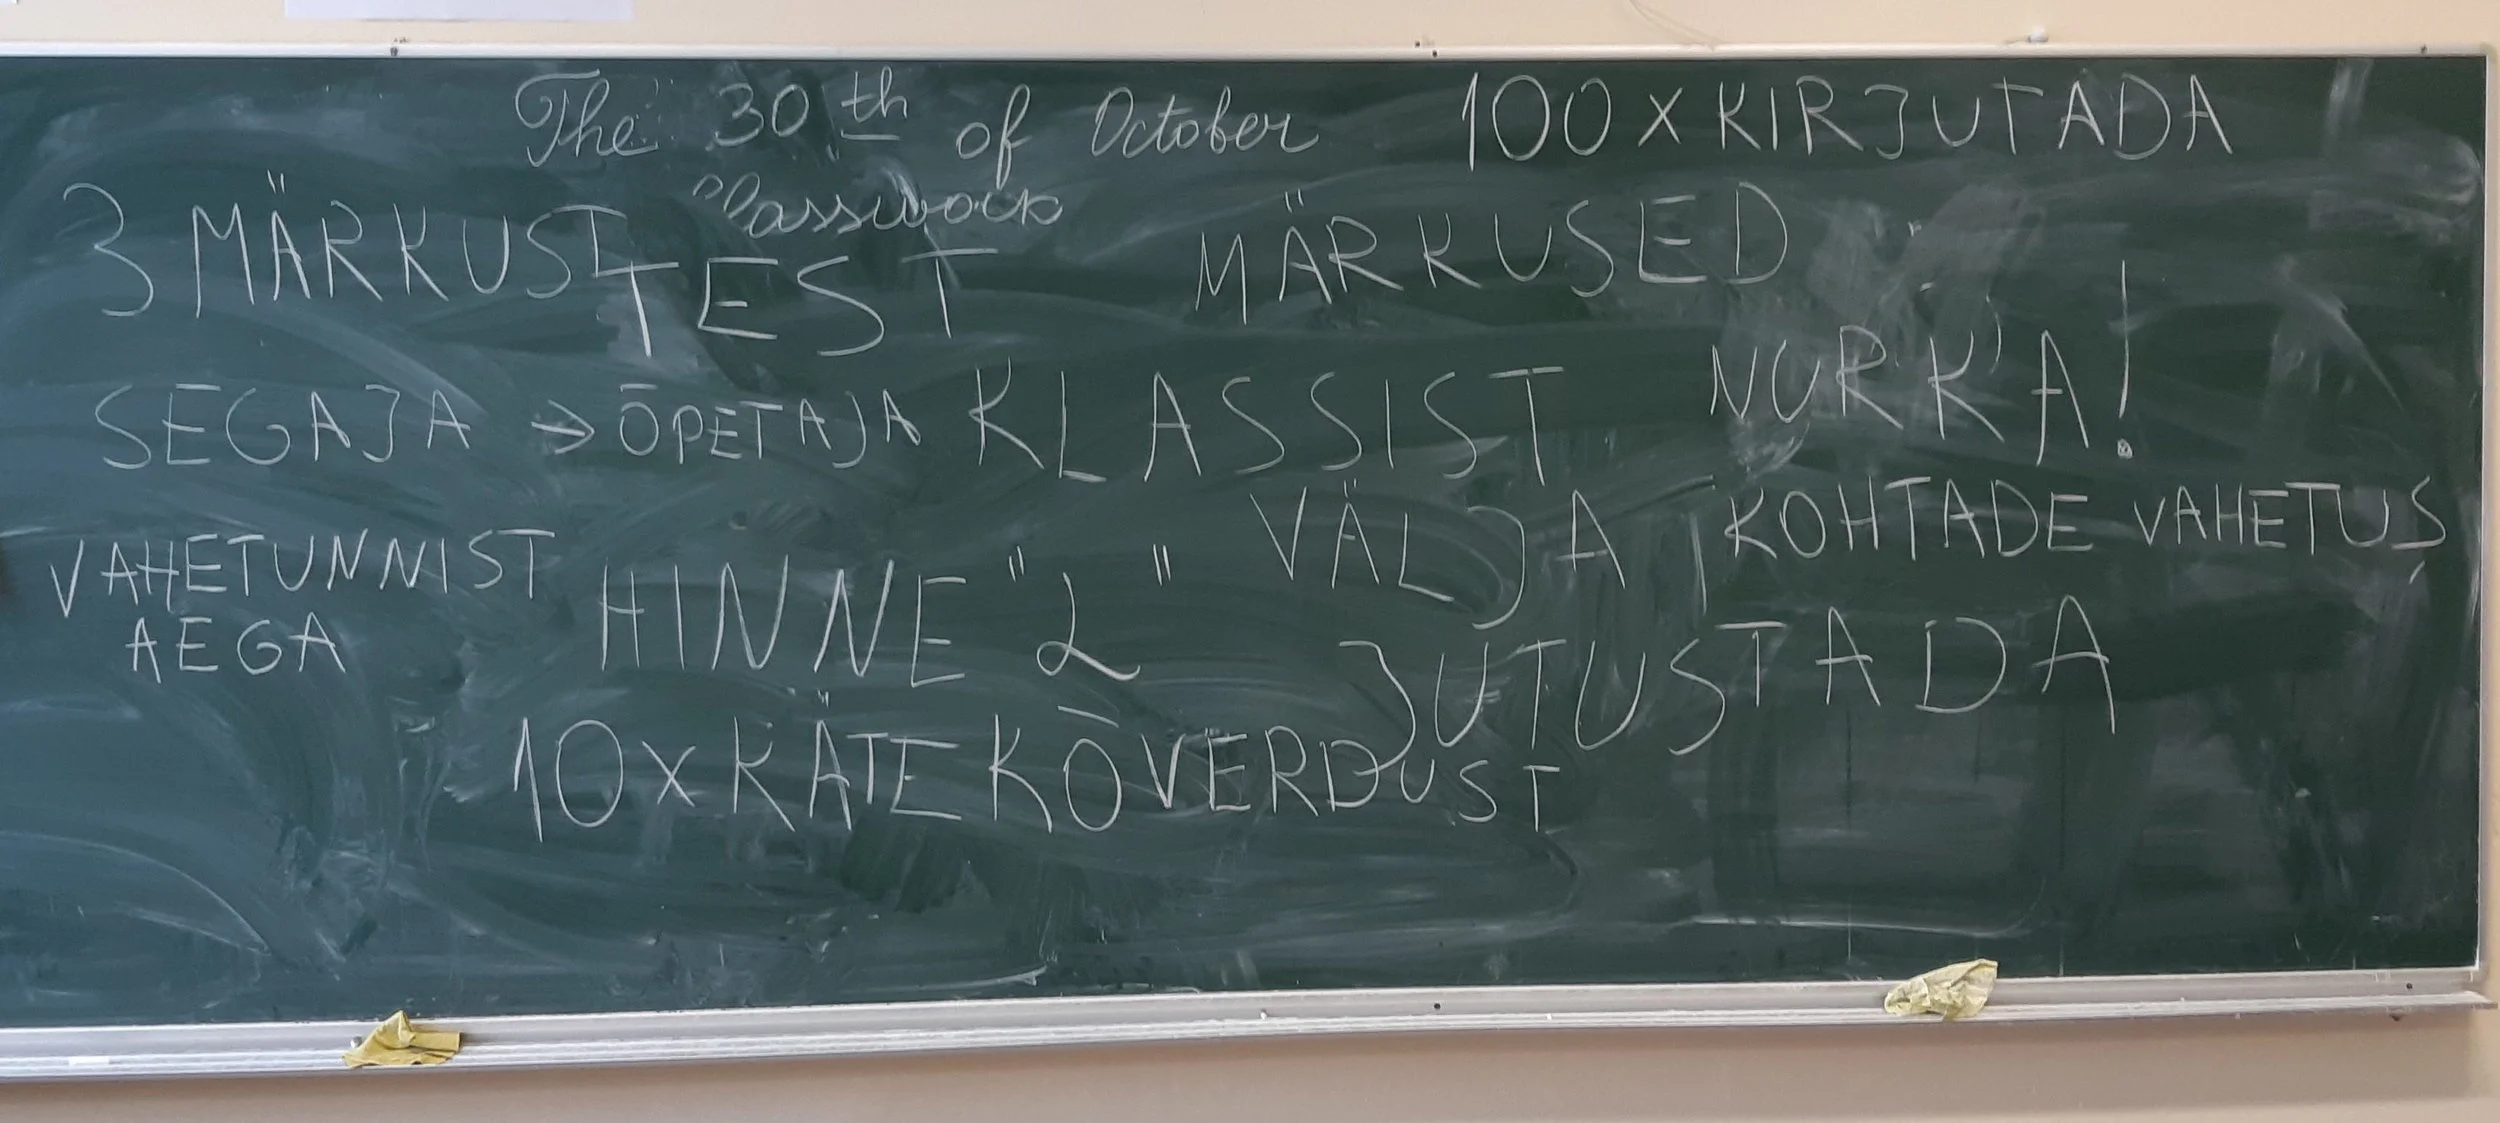 The 30th of October
Classwork
100 x KIRJUTADA
3 MÄRKUST
TEST
MÄRKUSED
NURKA!
SEGAJA → ŌPETAJA
KLASSIST
VÄLJA
KOHTADE VAHETUS
VAHETUNNIST
AEGA
HINNE "2"
JUTUSTADA
10x KÄTEKŌVERDUST